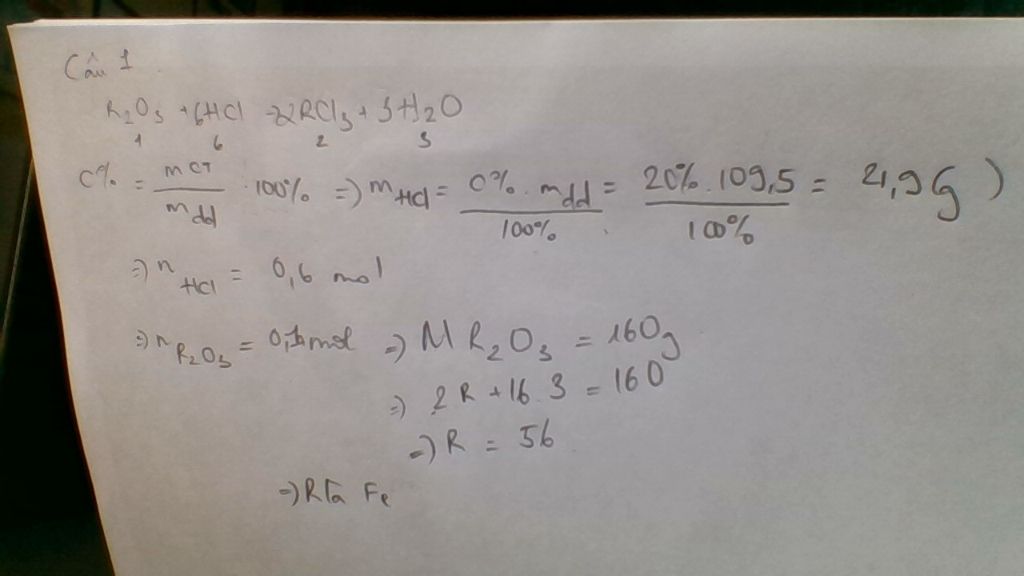 Câu 1
R₂O₃ + 6HCl → 2RCl₃ + 3H₂O
1 6 2 3
C% = mct / mdd . 100% => mHCl = C% . mdd / 100% = 20% . 109,5 / 100% = 21,9 g )
=> nHCl = 0,6 mol
=> nR₂O₃ = 0,1 mol => M R₂O₃ = 160g
=> 2R + 16.3 = 160
=> R = 56
=> R là Fe